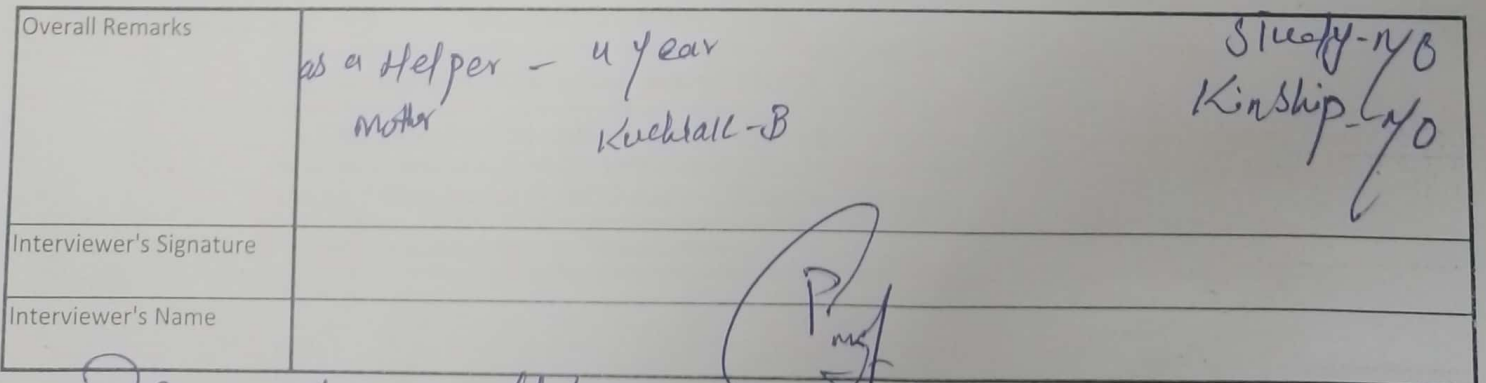 Overall Remarks
as a Helper - 4 year
Mother
Study-N/O
Kinship-N/O
Interviewer's Signature
Interviewer's Name